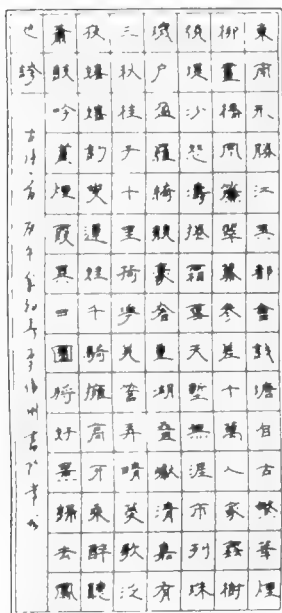 東南形勝江吳都會錢塘自古繁華煙
柳畫橋風簾翠幕參差十萬人家雲樹
繞堤沙怒濤捲霜雪天塹無涯市列珠
璣戶盈羅綺競豪奢重湖疊巘清嘉有
三秋桂子十里荷花羌管弄晴菱歌泛
夜嬉嬉釣叟蓮娃千騎擁高牙乘醉聽
簫鼓吟賞煙霞異日圖將好景歸去鳳
池誇
古詩一首